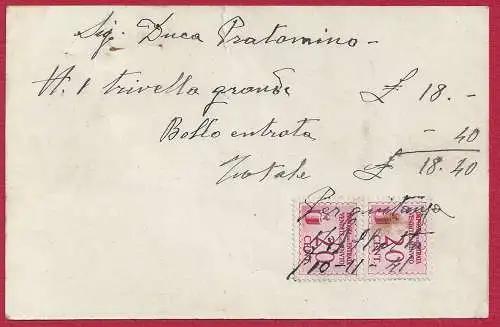 Sig. Duca Pratomino -
N. 1 trivella grande £ 18. -
Bollo entrata - 40
Totale £ 18.40
Per quitanza
20 20
CENT. CENT.